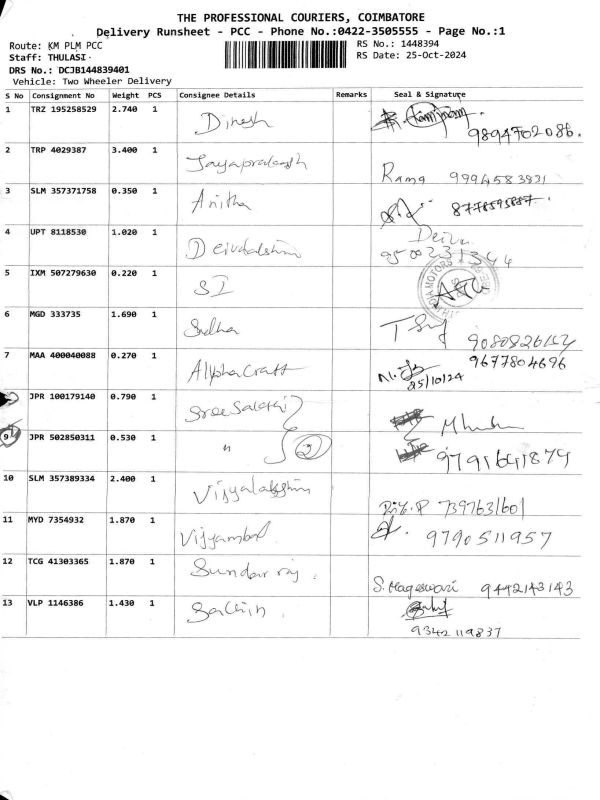 THE PROFESSIONAL COURIERS, COIMBATORE
Delivery Runsheet - PCC - Phone No.:0422-3505555 - Page No.:1
Route: KM PLM PCC RS No.: 1448394
Staff: THULASI RS Date: 25-Oct-2024
DRS No.: DCJB144839401
Vehicle: Two Wheeler Delivery
S No Consignment No Weight PCS Consignee Details Remarks Seal & Signature
1 TRZ 195258529 2.740 1 Dinesh 9894702086.
2 TRP 4029387 3.400 1 Jayaprakash Rama 9994583931
3 SLM 357371758 0.350 1 Anitha
4 UPT 8118530 1.020 1 Deivalakshmi Deivu
5 IXM 507279630 0.220 1 SI
6 MGD 333735 1.690 1 Sudha
7 MAA 400040088 0.270 1 Alphacraft 9677804696
25/10/24
JPR 100179140 0.790 1
9 JPR 502850311 0.530 1 " 2 9791641879
10 SLM 357389334 2.400 1 Vijyalakshmi 7397631601
11 MYD 7354932 1.870 1 9790511957
12 TCG 41303365 1.870 1 Sundar raj. S. Nageswari 9492143143
13 VLP 1146386 1.430 1 Sachin.
9342119837